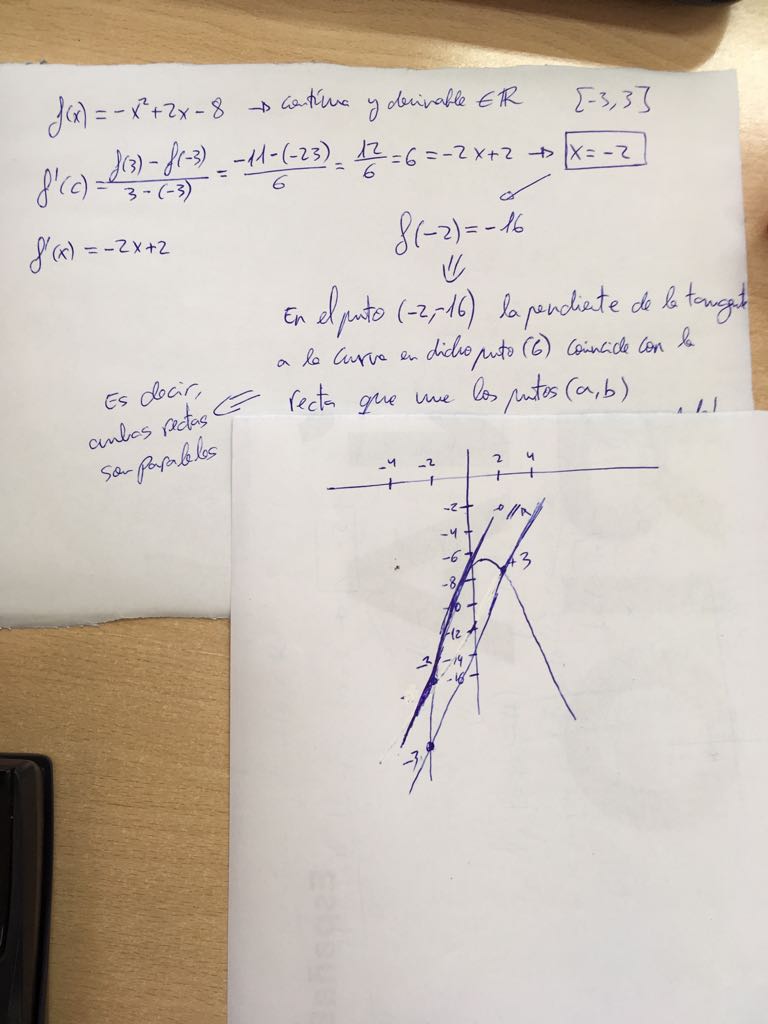 f(x) = -x²+2x-8 → contínua y derivable ∈ ℝ [-3,3]
f'(c) = f(3) - f(-3) / 3 - (-3) = -11-(-23) / 6 = 12 / 6 = 6 = -2x+2 → x = -2
f'(x) = -2x+2
f(-2) = -16
⇓
En el pnto (-2,-16) la pendiente de la tangente
a la curva en dicho pnto (6) coincide con la
recta que une los pntos (a,b)
Es decir, ⇐
ambas rectas
son paralelas
-4 -2 2 4
-2
-4
-6
-8
-10
-12
-14
-16
+3
-3